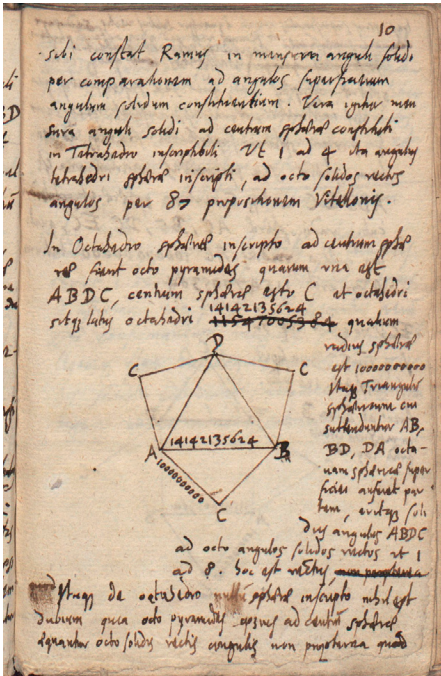 10
sibi constat Ramus in mensura anguli solidi
per comparationem ad angulos superficierum
angulum solidum constituentium. Vera igitur men
sura anguli solidi ad centrum sphæræ constituti
in Tetrahedro inscriptibili Ut 1 ad 4 ita angulus
tetrahedri sphæræ inscripti, ad octo solidos rectos
angulos per 87 propositionem Vitellonis.
In Octahedro sphæræ inscripto ad centrum sphæ
ræ fient octo pyramides quarum una est
ABDC, centrum sphæræ esto C et octahedri
14142135624
sitque latus octahedri 11547005384 qualium
radius sphæræ
est 10000000000
Itaque Triangulus
sphæricus cui
subtenduntur AB,
BD, DA octa-
vam sphæricæ super
ficiei auferet par
tem, eritque soli
dus angulus ABDC
D
C
C
A
14142135624
B
10000000000
C
ad octo angulos solidos rectos ut 1
ad 8. hoc est rectus
Itaque de octahedro sphæræ inscripto nihil est
dubium quia octo pyramides ad centrum sphæræ
æquantur octo solidis rectis angulis non propterea quod